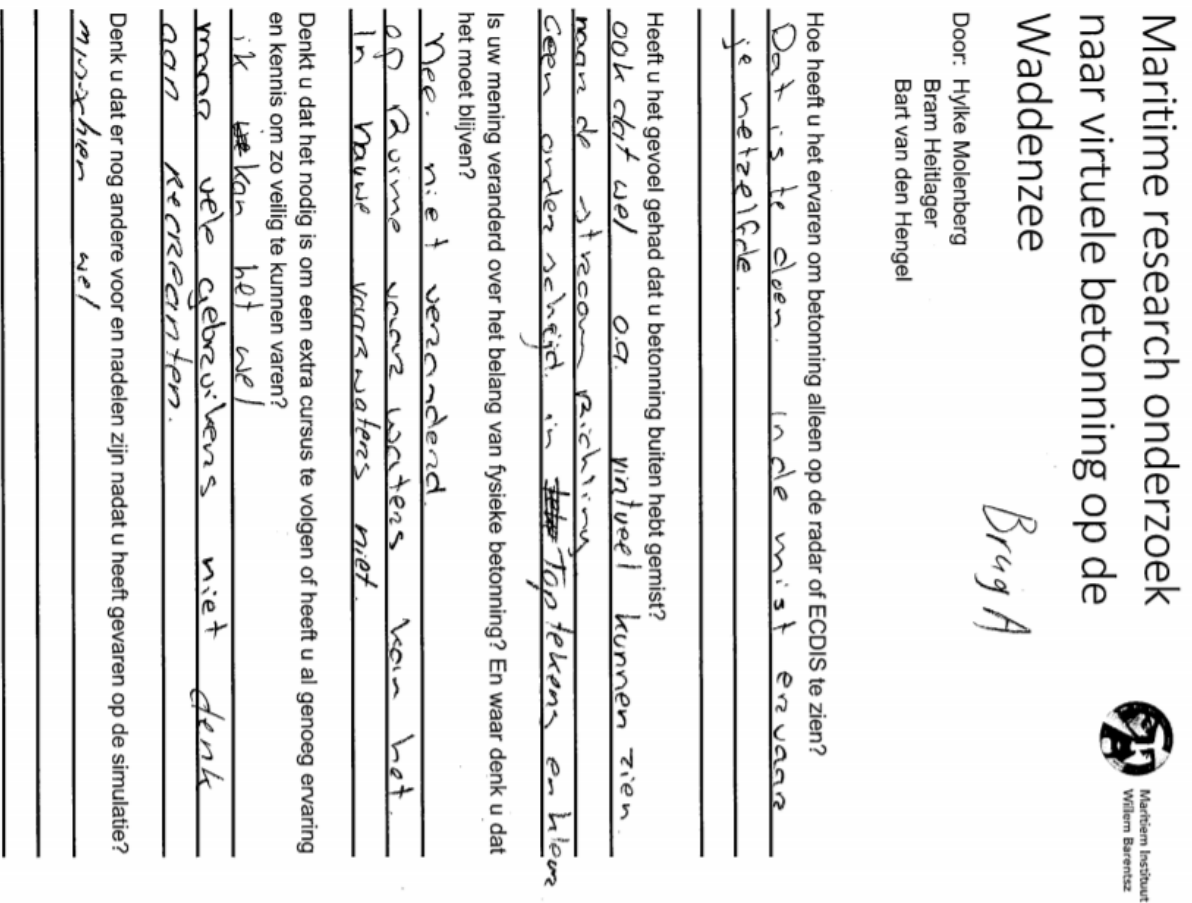 Maritime research onderzoek
naar virtuele betonning op de
Waddenzee
Maritiem Instituut
Willem Barentsz
Door: Hylke Molenberg
Bram Heitlager
Bart van den Hengel
Brug A
Hoe heeft u het ervaren om betonning alleen op de radar of ECDIS te zien?
Dat is te doen. in de mist ervaar
je hetzelfde.
Heeft u het gevoel gehad dat u betonning buiten hebt gemist?
ook dat wel o.a. kunnen zien
naar de stroom richting
Geen onderscheijd. in Top tekens en kleur
Is uw mening veranderd over het belang van fysieke betonning? En waar denk u dat
het moet blijven?
Nee. niet veranderd.
op Ruime vaar waters kan het.
In nauwe vaarwaters niet.
Denkt u dat het nodig is om een extra cursus te volgen of heeft u al genoeg ervaring
en kennis om zo veilig te kunnen varen?
ik kan het wel
maar vele gebruikers niet denk
aan Recreanten.
Denk u dat er nog andere voor en nadelen zijn nadat u heeft gevaren op de simulatie?
misschien wel